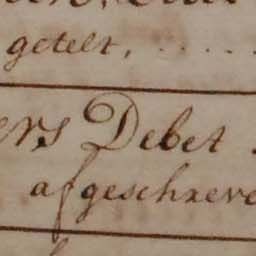 getelt, .....
ers Debet .
afgeschreve